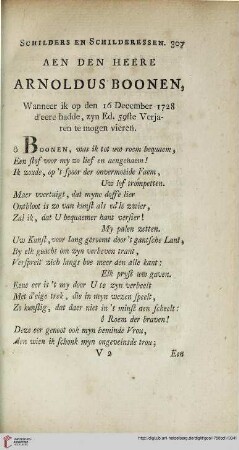 SCHILDERS EN SCHILDERESSEN. 307
AEN DEN HEERE
ARNOLDUS BOONEN,
Wanneer ik op den 16 December 1728
d'eere hadde, zyn Ed. 59ste Verja-
ren te mogen vieren.
ô BOONEN, was ik tot uw roem bequaem,
Een stof voor my zo lief en aengenaem!
Ik zoude, op 't spoor der onvermoeide Faem,
Uw lof trompetten.
Maer overtuigt, dat myne doffe lier
Ontbloot is zo van kunst als edle zwier,
Zal ik, dat U bequaemer hant versier!
My palen zetten.
Uw Kunst, voor lang geroemt door 't gantsche Lant,
By elk geacht om zyn verheven trant,
Verspreit zich langs hoe meer den alle kant:
Elk pryst uw gaven.
Eene eer is 't my door U te zyn verbeelt
Met d'eige trek, die in myn wezen speelt,
Zo kunstig, dat daer niet in 't minst aen scheelt:
ô Roem der braven!
Deze eer genoot ook myn beminde Vrou,
Aen wien ik schonk myn ongeveinsde trou;
V 2 Een